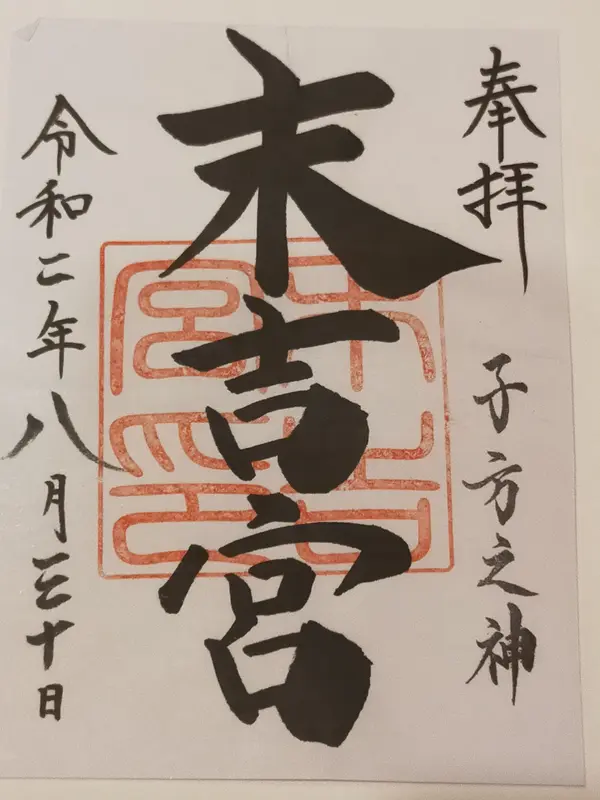 奉拝
子方之神
末吉宮
末吉宮印
令和二年八月三十日